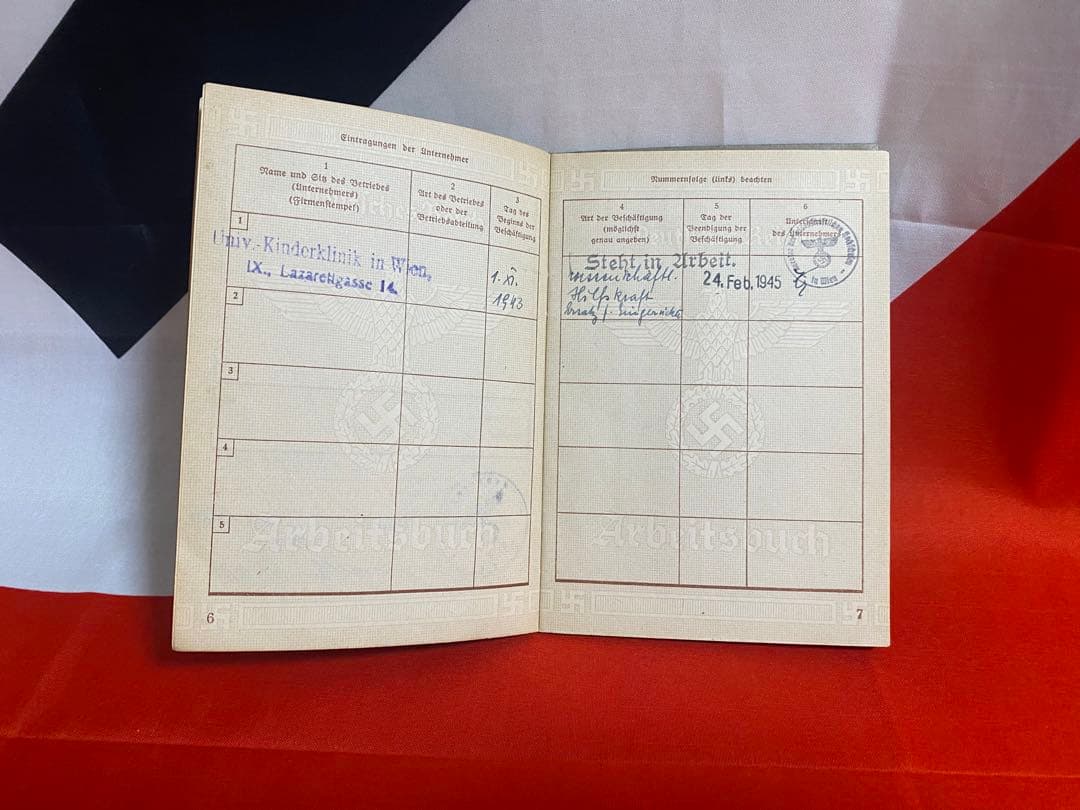 Eintragungen der Unternehmer
1
Name und Sitz des Betriebes
(Unternehmers)
(Firmenstempel)
2
Art des Betriebes
oder der
Betriebsabteilung
3
Tag des
Beginns der
Beschäftigung
1
Univ.-Kinderklinik in Wien,
IX., Lazarettgasse 14.
1. XI.
1943
2
3
4
5
Arbeitsbuch
6
Nummernfolge (links) beachten
4
Art der Beschäftigung
(möglichst
genau angeben)
5
Tag der
Beendigung der
Beschäftigung
6
Unterschrift
des Unternehmers
Steht in Arbeit.
24. Feb. 1945
Hilfskraft
in Wien
Arbeitsbuch
7